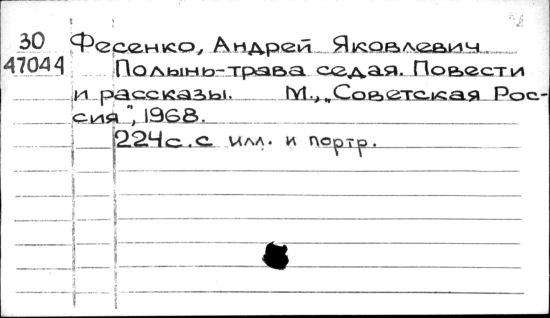 30 Фесенко, Андрей Яковлевич
47044 Полынь-трава седая. Повести
и рассказы. М., „Советская Рос-
сия", 1968.
224с.с илл. и портр.